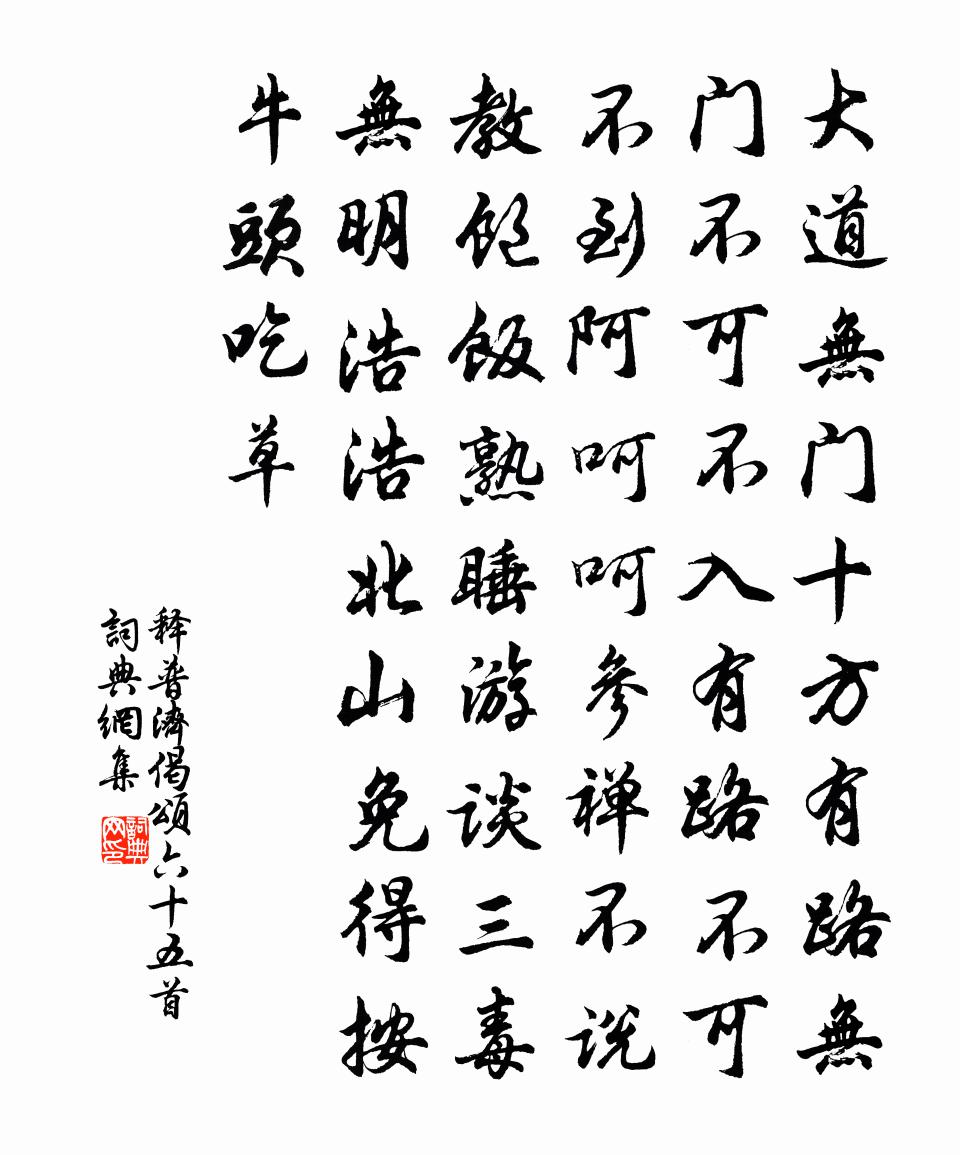 大道無门十方有路無
门不可不入有路不可
不到阿呵呵参禅不说
教饱饭熟睡游谈三毒
無明浩浩北山免得按
牛頭吃草
释普濟偈頌六十五首
詞典網集
詞典网印